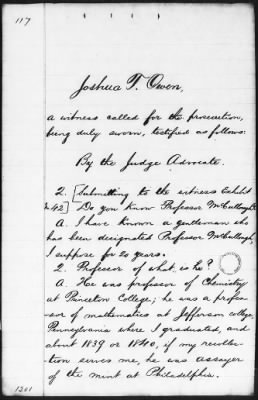 117
Joshua T. Owen,
a witness called for the prosecution,
being duly sworn, testified as follows:
By the Judge Advocate.
Q. [Submitting to the witness Exhibit
No. 42] Do you know Professor McCullough?
A. I have known a gentleman who
has been designated Professor McCullough,
I suppose for 20 years.
Q. Professor of what is he?
A. He was professor of Chemistry
at Princeton College; he was a profes-
sor of mathematics at Jefferson college,
Pennsylvania where I graduated, and
about 1839 or 1840, if my recollec-
tion serves me, he was assayer
of the mint at Philadelphia.
1201